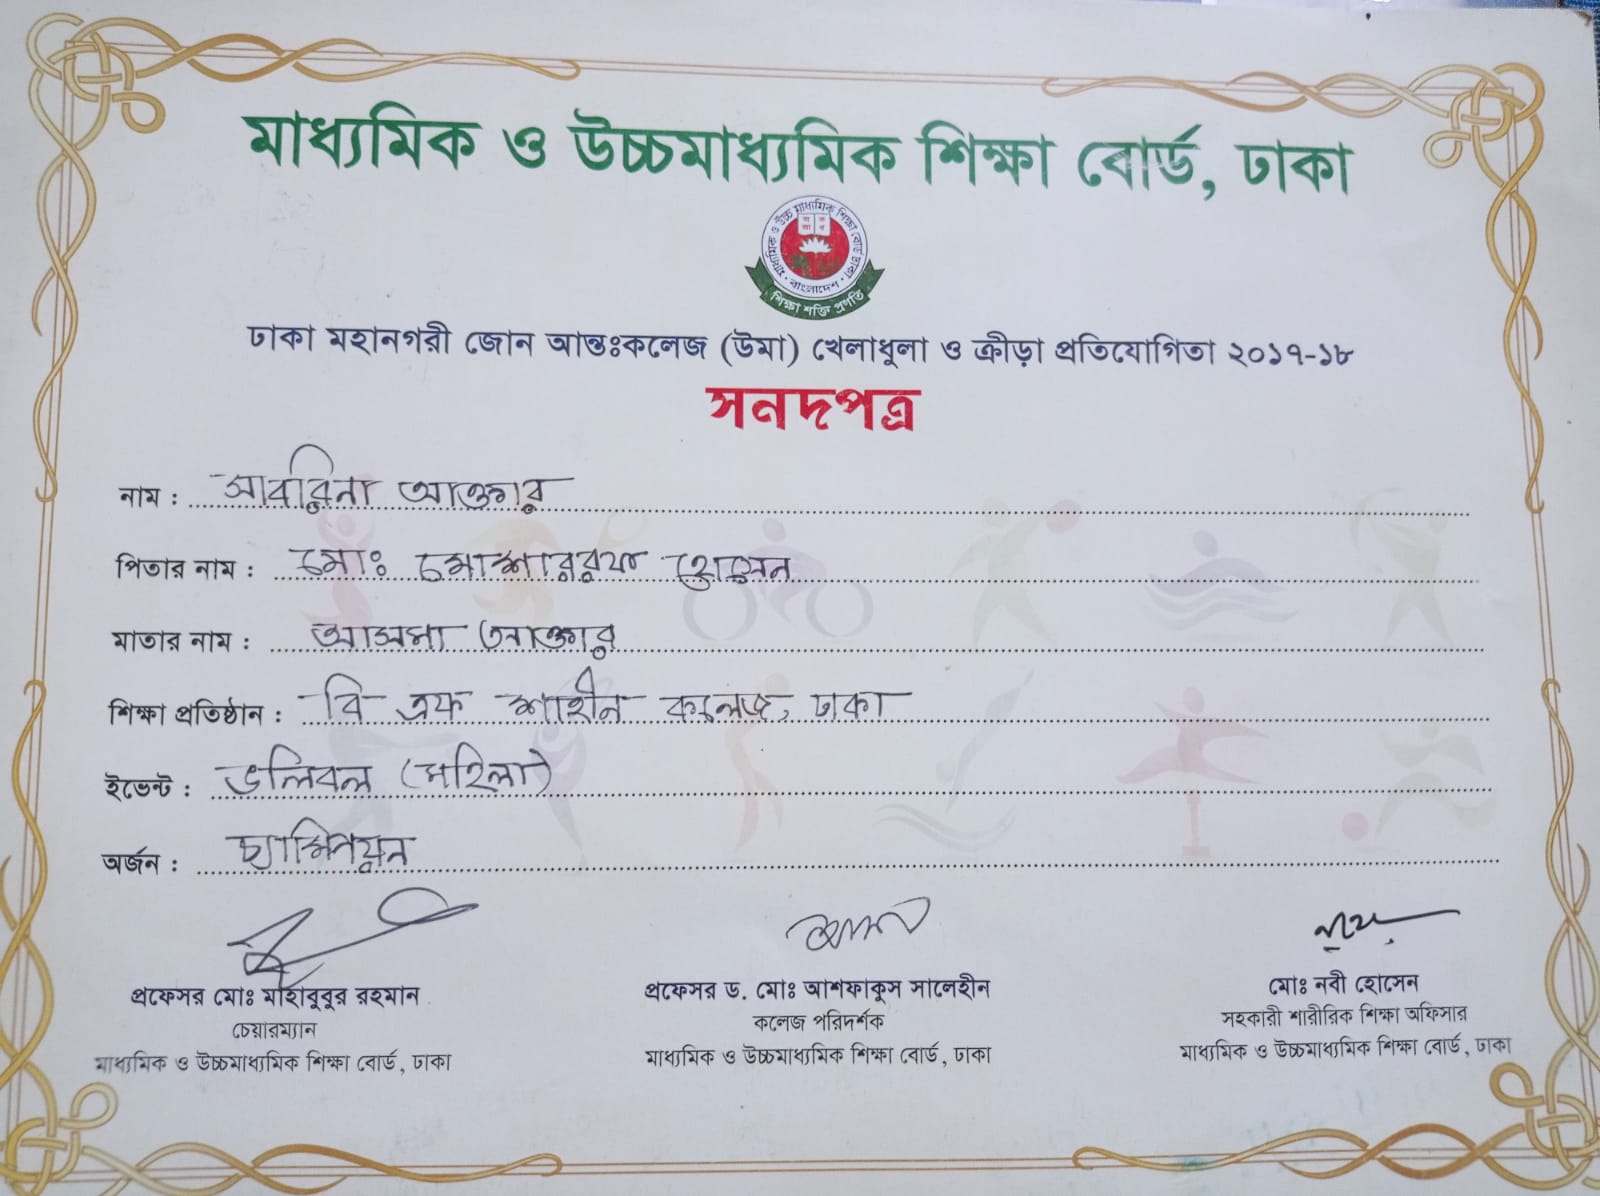 মাধ্যমিক ও উচ্চমাধ্যমিক শিক্ষা বোর্ড, ঢাকা
মাধ্যমিক ও উচ্চ মাধ্যমিক শিক্ষা বোর্ড ঢাকা
বাংলাদেশ
শিক্ষা শক্তি প্রগতি
ঢাকা মহানগরী জোন আন্তঃকলেজ (উমা) খেলাধুলা ও ক্রীড়া প্রতিযোগিতা ২০১৭-১৮
সনদপত্র
নাম : সাবরিনা আক্তার
পিতার নাম : মোঃ মোশাররফ হোসেন
মাতার নাম : আসমা আক্তার
শিক্ষা প্রতিষ্ঠান : বি এফ শাহীন কলেজ, ঢাকা
ইভেন্ট : ভলিবল (মহিলা)
অর্জন : চ্যাম্পিয়ন
প্রফেসর মোঃ মাহাবুবুর রহমান
চেয়ারম্যান
মাধ্যমিক ও উচ্চমাধ্যমিক শিক্ষা বোর্ড, ঢাকা
প্রফেসর ড. মোঃ আশফাকুস সালেহীন
কলেজ পরিদর্শক
মাধ্যমিক ও উচ্চমাধ্যমিক শিক্ষা বোর্ড, ঢাকা
মোঃ নবী হোসেন
সহকারী শারীরিক শিক্ষা অফিসার
মাধ্যমিক ও উচ্চমাধ্যমিক শিক্ষা বোর্ড, ঢাকা